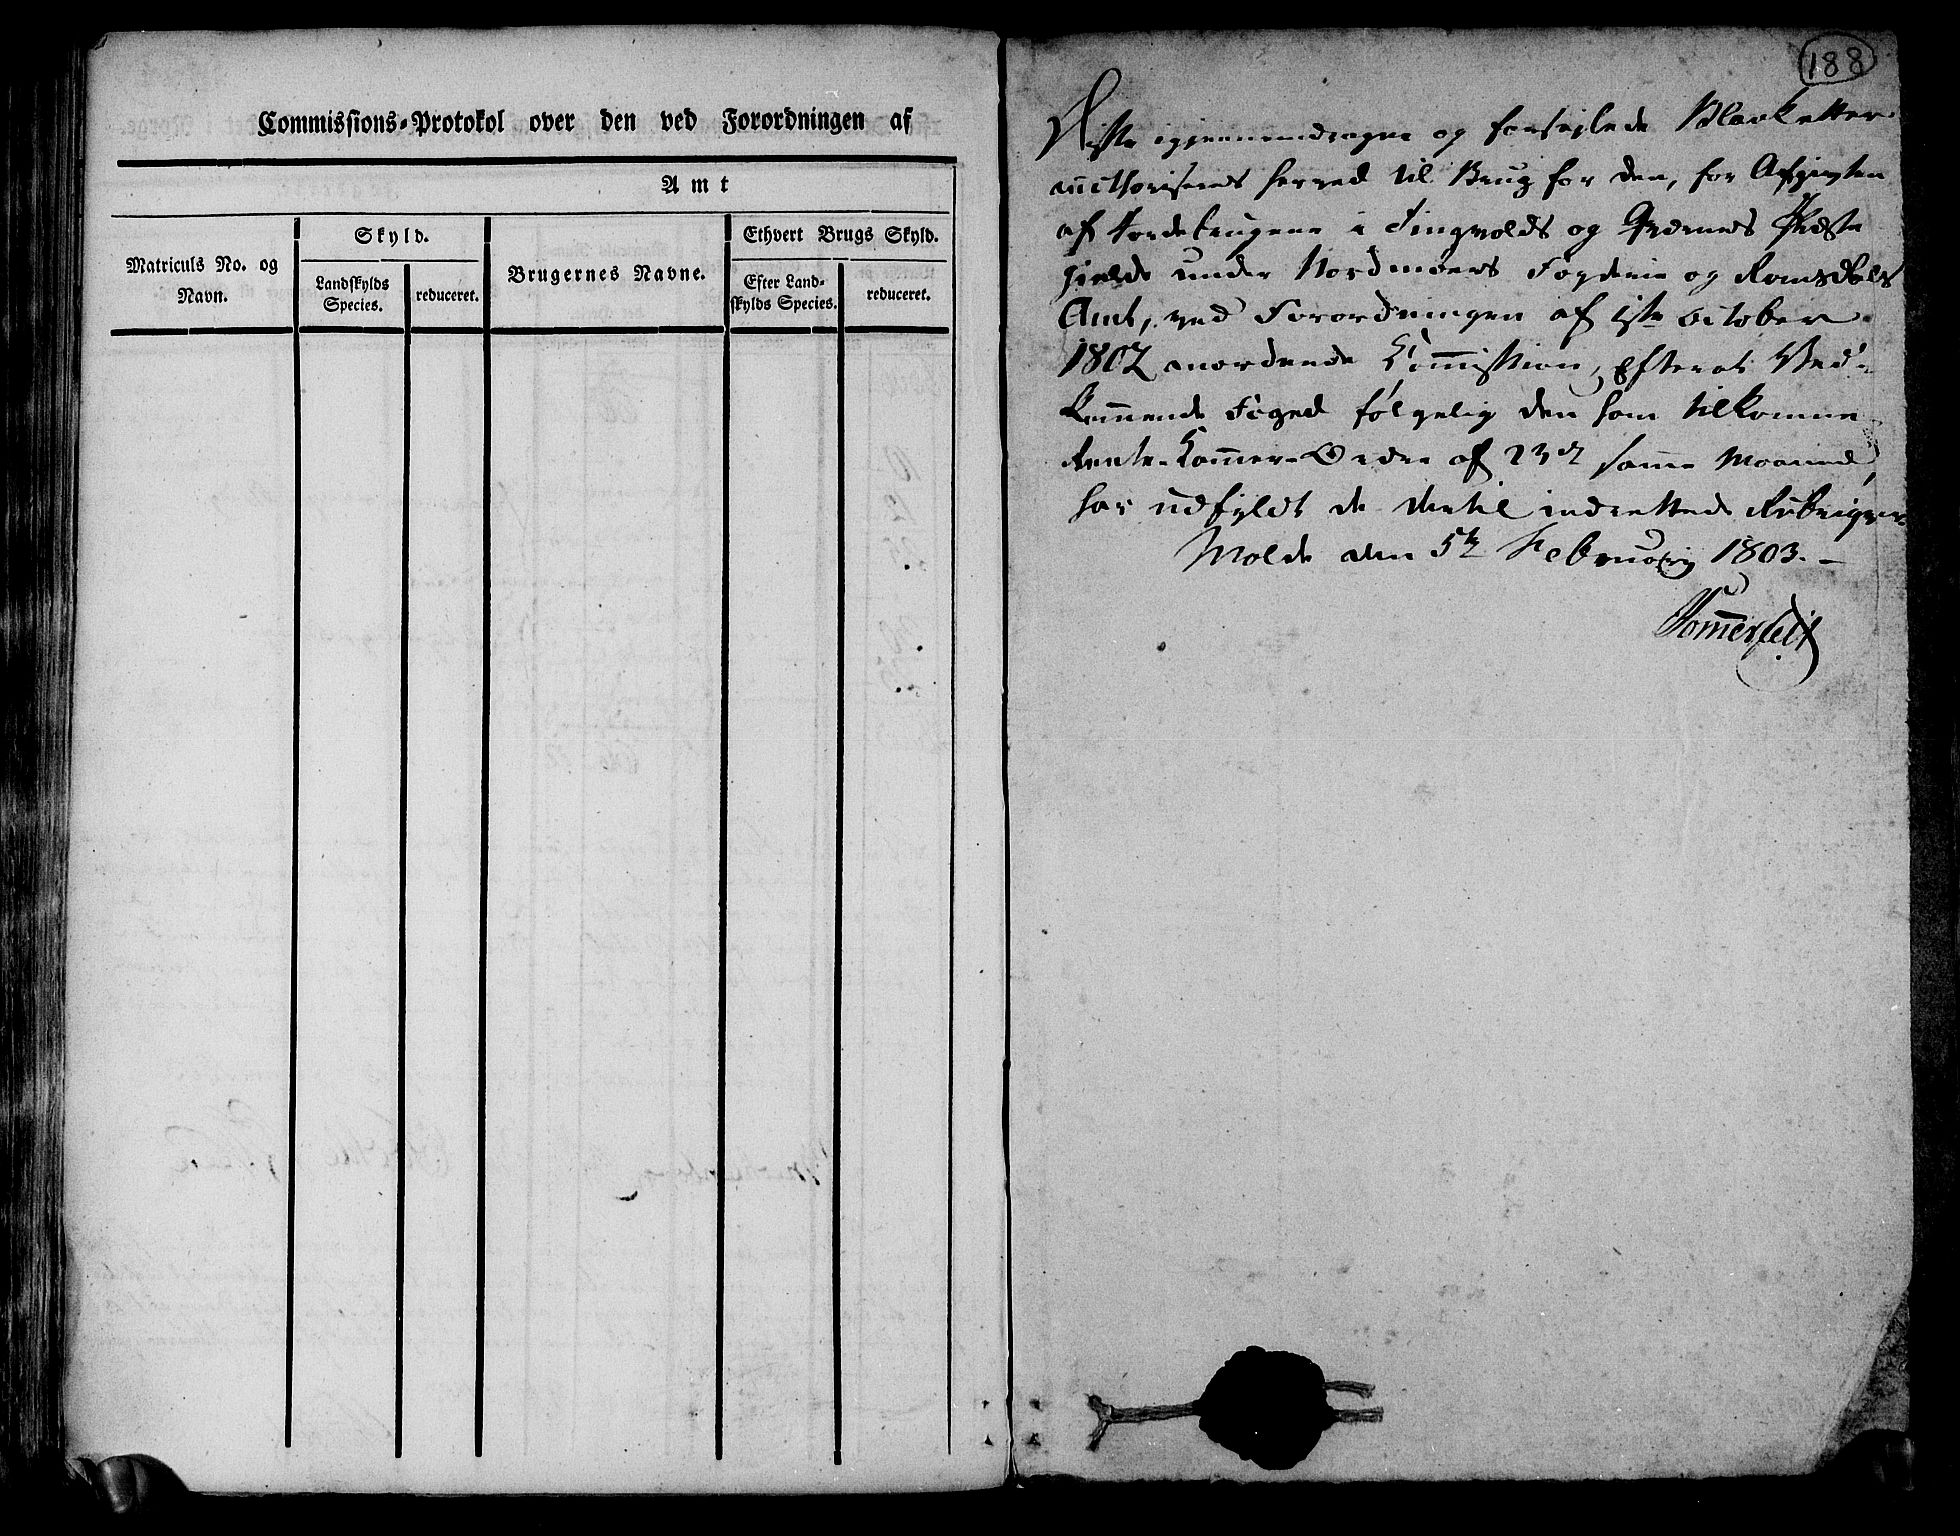 Commissions-Protokol over den ved Forordningen af
Amt
Matriculs No. og Navn.
Skyld.
Landskylds Species.
reduceret.
Brugernes Navne.
Ethvert Brugs Skyld.
Efter Landskylds Species.
reduceret.
188
Disse igjennemdragne og forseglede Blanketter
aucthoriseres herved til Brug for den, for Afgivten
af Jordebrugene i Tingvolds og Qværnes Præste
gjelde under Nordmoers Fogderie og Romsdals
Amt, ved Forordningen af 1ste october
1802 anordnede Commission, efterat Ved-
kommende Foged følgelig den ham tilkomne
Rente-Kammer-Ordre af 23de samme Maaned,
har udfyldt de dertil indrettede Rubriqver
Molde den 5te Februarij 1803.-
Sommerfeldt